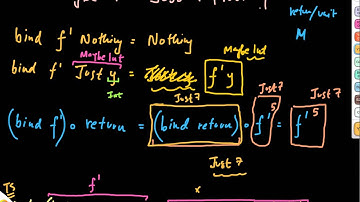 return/unit
M
bind f' Nothing = Nothing
Maybe Int
Maybe Int
bind f' Just y = f' y
Int
Just 7
Just 7
Just 7
5
5
(bind f') ∘ return = (bind return) ∘ f' = f'
Just 7
TS
f'
x